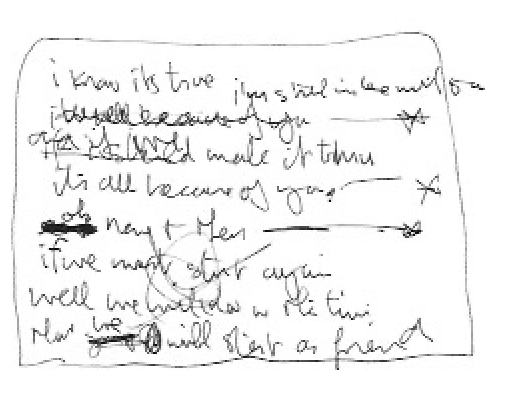 i know its true i'm still in love with you
it's all because of you
if i made it thru
it's all because of you
oh now & then
if we must start again
well we will in the time
that we will start as friend